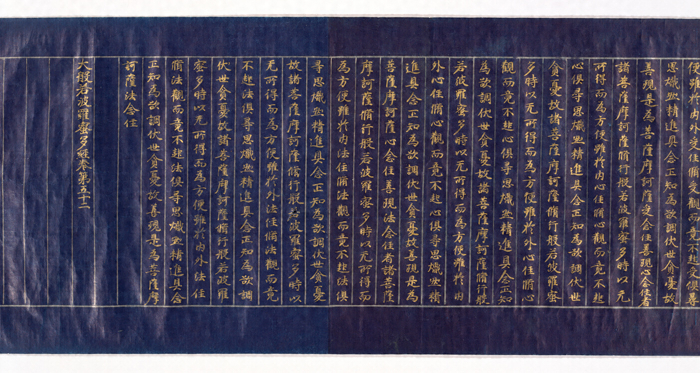 便雖於內外受住脩受觀而竟不起受俱尋
思熾然精進具念正知為欲調伏世貪憂故
善現是為菩薩摩訶薩受念住善現心念住者
諸菩薩摩訶薩脩行般若波羅蜜多時以无
所得而為方便雖於內心住脩心觀而竟不起
心俱尋思熾然精進具念正知為欲調伏世
貪憂故諸菩薩摩訶薩脩行般若波羅蜜
多時以无所得而為方便雖於外心住脩心
觀而竟不起心俱尋思熾然精進具念正知
為欲調伏世貪憂故諸菩薩摩訶薩脩行般
若波羅蜜多時以无所得而為方便雖於內
外心住脩心觀而竟不起心俱尋思熾然精
進具念正知為欲調伏世貪憂故善現是為
菩薩摩訶薩心念住善現法念住者諸菩薩
摩訶薩脩行般若波羅蜜多時以无所得而
為方便雖於內法住脩法觀而竟不起法俱
尋思熾然精進具念正知為欲調伏世貪憂
故諸菩薩摩訶薩脩行般若波羅蜜多時以
无所得而為方便雖於外法住脩法觀而竟
不起法俱尋思熾然精進具念正知為欲調
伏世貪憂故諸菩薩摩訶薩脩行般若波羅
蜜多時以无所得而為方便雖於內外法住
脩法觀而竟不起法俱尋思熾然精進具念
正知為欲調伏世貪憂故善現是為菩薩摩
訶薩法念住
大般若波羅蜜多經卷第五十二